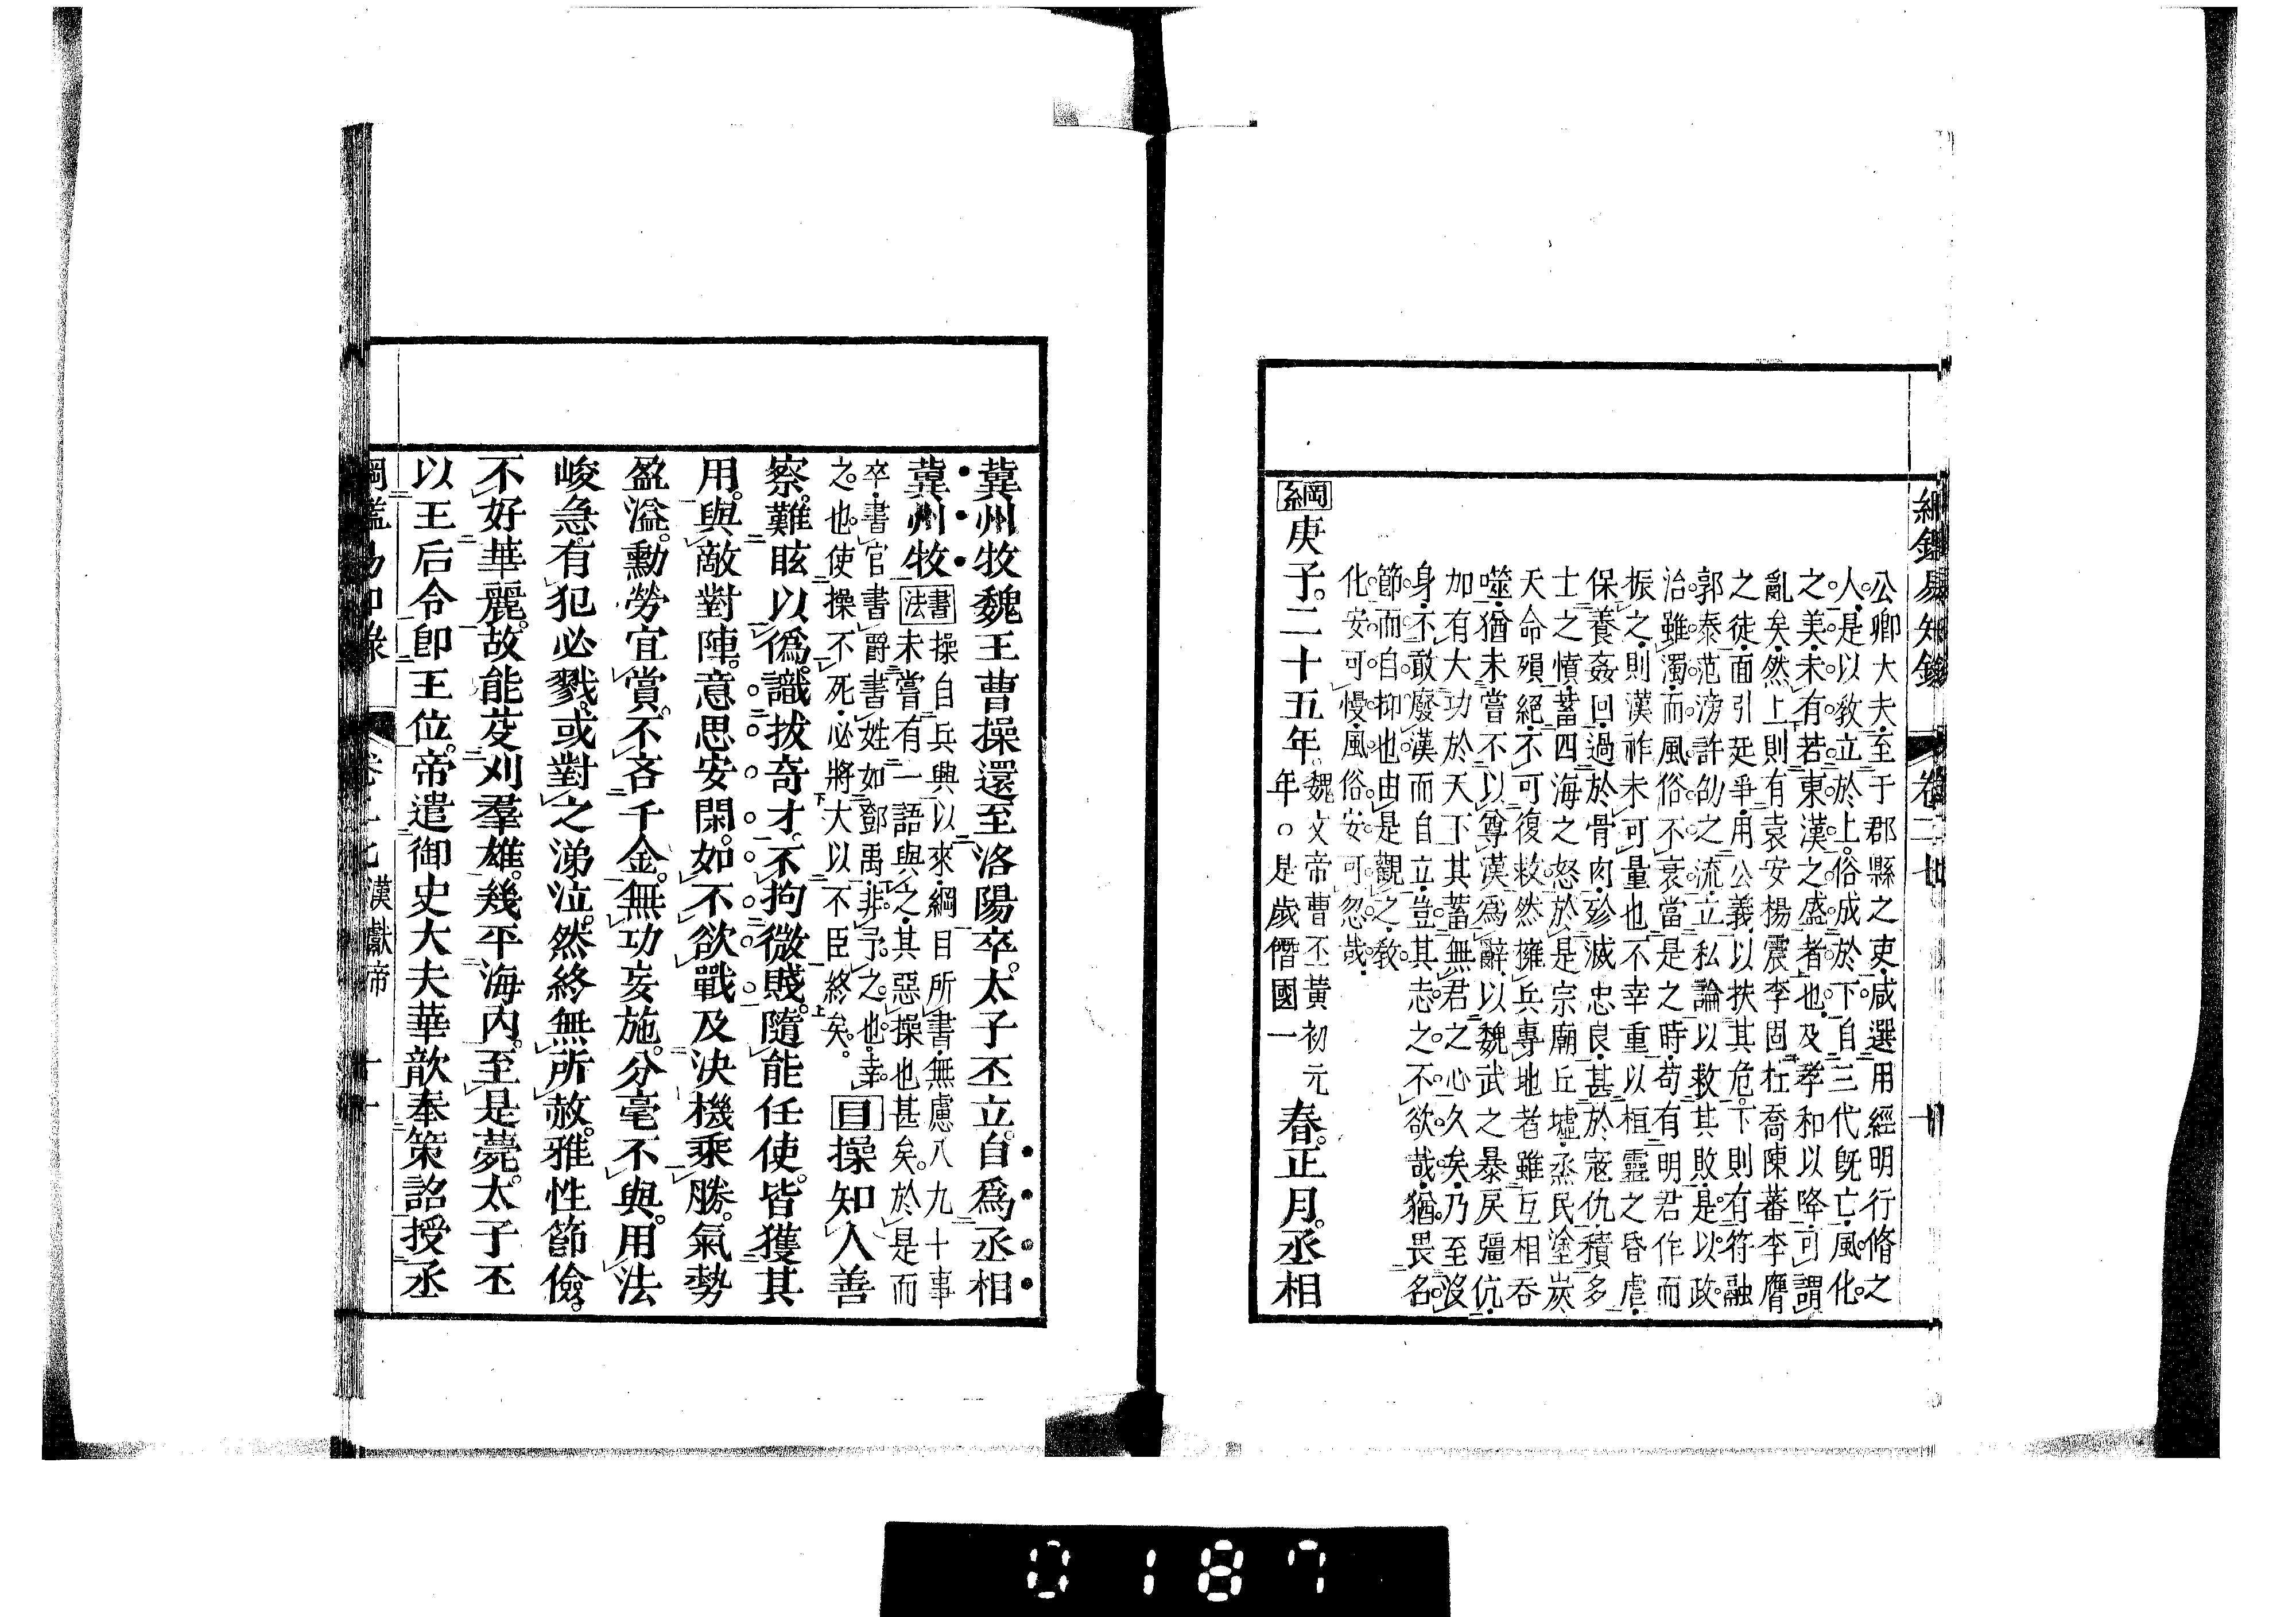 綱鑑易知錄 卷二十七 十一
公卿大夫至于郡縣之吏咸選用經明行脩之
人是以敎立於上俗成於下自三代旣亡風化
之美未有若東漢之盛者也及孝和以降可謂
亂矣然上則有袁安楊震李固杜喬陳蕃李膺
之徒面引廷爭用公義以扶其危下則有符融
郭泰范滂許劭之流立私論以救其敗是以政
治雖濁而風俗不衰當是之時苟有明君作而
振之則漢祚未可量也不幸重以桓靈之昏虐
保養姦回過於骨肉殄滅忠良甚於寇仇積多
士之憤蓄四海之怒於是宗廟丘墟烝民塗炭
天命殞絕不可復救然擁兵專地者雖互相吞
噬猶未嘗不以尊漢爲辭以魏武之暴戾彊伉
加有大功於天下其蓄無君之心久矣乃至沒
身不敢廢漢而自立豈其志之不欲哉猶畏名
節而自抑也由是觀之敎
化安可慢風俗安可忽哉
綱庚子二十五年魏文帝曹丕黃初元
年○是歲僭國一春正月丞相
冀州牧魏王曹操還至洛陽卒太子丕立自爲丞相
冀州牧書法操自兵興以來綱目所書無慮八九十事
未嘗有一語與之其惡操也甚矣於是而
卒書官書爵書姓如鄧禹非予之也幸
之也使操不死必將大以不臣終矣目操知入善
察難眩以僞識拔奇才不拘微賤隨能任使皆獲其
用與敵對陣意思安閑如不欲戰及決機乘勝氣勢
盈溢勳勞宜賞不吝千金無功妄施分毫不與用法
峻急有犯必戮或對之涕泣然終無所赦雅性節儉
不好華麗故能芟刈羣雄幾平海內至是薨太子丕
以王后令卽王位帝遣御史大夫華歆奉策詔授丞
綱鑑易知錄 卷二十七 漢獻帝 十一
0187